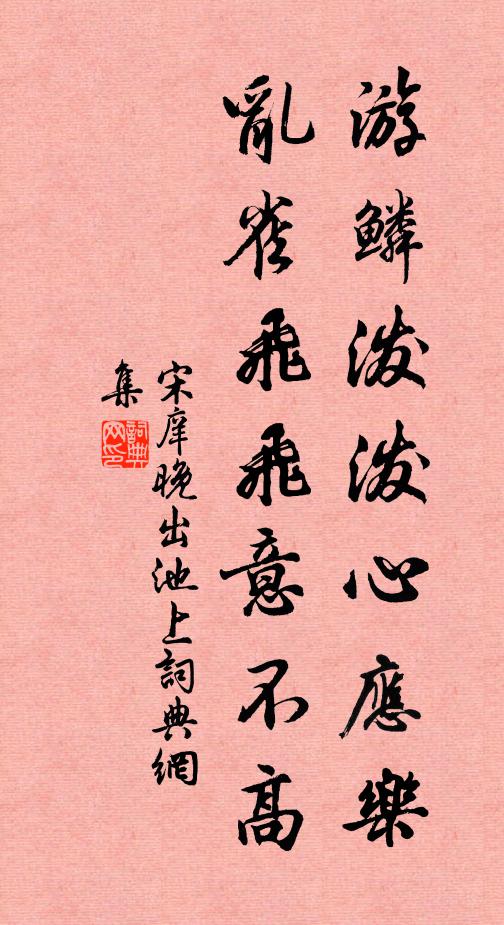 游鱗泼泼心應樂
亂雀飛飛意不高
宋庠晚出池上詞典網
集
詞典网印